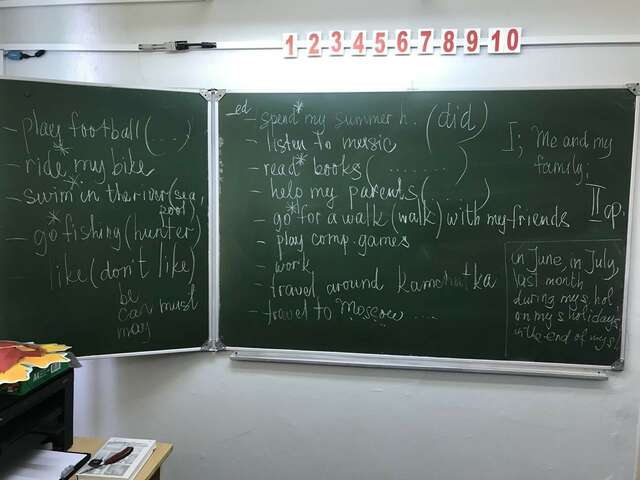 1 2 3 4 5 6 7 8 9 10
- play football (...)
- ride* my bike
- swim* in the river (sea,
pool)
- go* fishing (hunter)
like (don't like)
be
can must
may
_ed
- spend* my summer h. (did)
- listen to music
- read* books (.......)
- help my parents (.....)
- go* for a walk (walk) with my friends
- play comp. games
- work
- travel around Kamchatka
- travel to Moscow ....
I; Me and my
family.
II op.
in June, in July,
last month
during my s. hol.
on my s. holidays
in the end of my s.